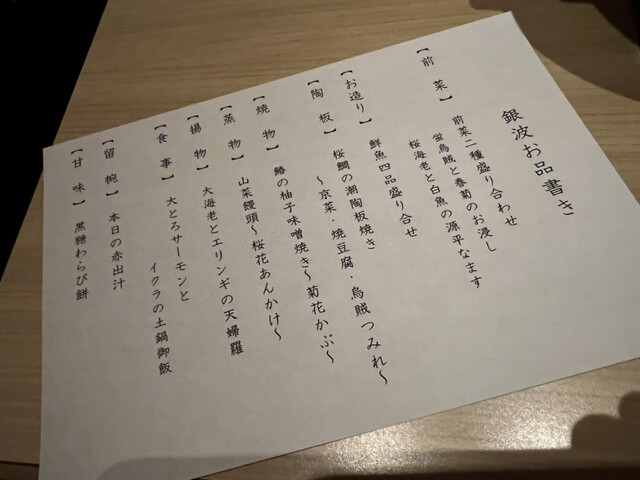 銀波お品書き
【前菜】 前菜二種盛り合わせ
蛍烏賊と春菊のお浸し
桜海老と白魚の源平なます
【お造り】 鮮魚四品盛り合せ
【陶板】 桜鯛の潮陶板焼き
～京菜・焼豆腐・烏賊つみれ～
【焼物】 鰆の柚子味噌焼き～菊花かぶ～
【蒸物】 山菜饅頭～桜花あんかけ～
【揚物】 大海老とエリンギの天婦羅
【食事】 大とろサーモンと
イクラの土鍋御飯
【留椀】 本日の赤出汁
【甘味】 黒糖わらび餅